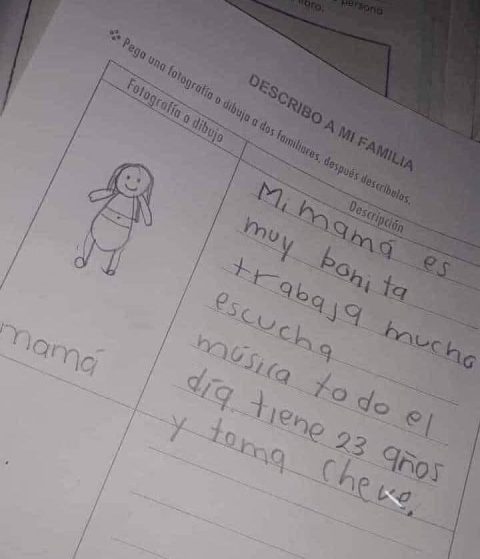 libro.
persona
DESCRIBO A MI FAMILIA
Pega una fotografía o dibuja a dos familiares, después descríbelos.
Fotografía o dibujo
Descripción
Mi mamá es
muy bonita
trabaja mucho
escucha
música todo el
día tiene 23 años
y toma cheve.
mamá